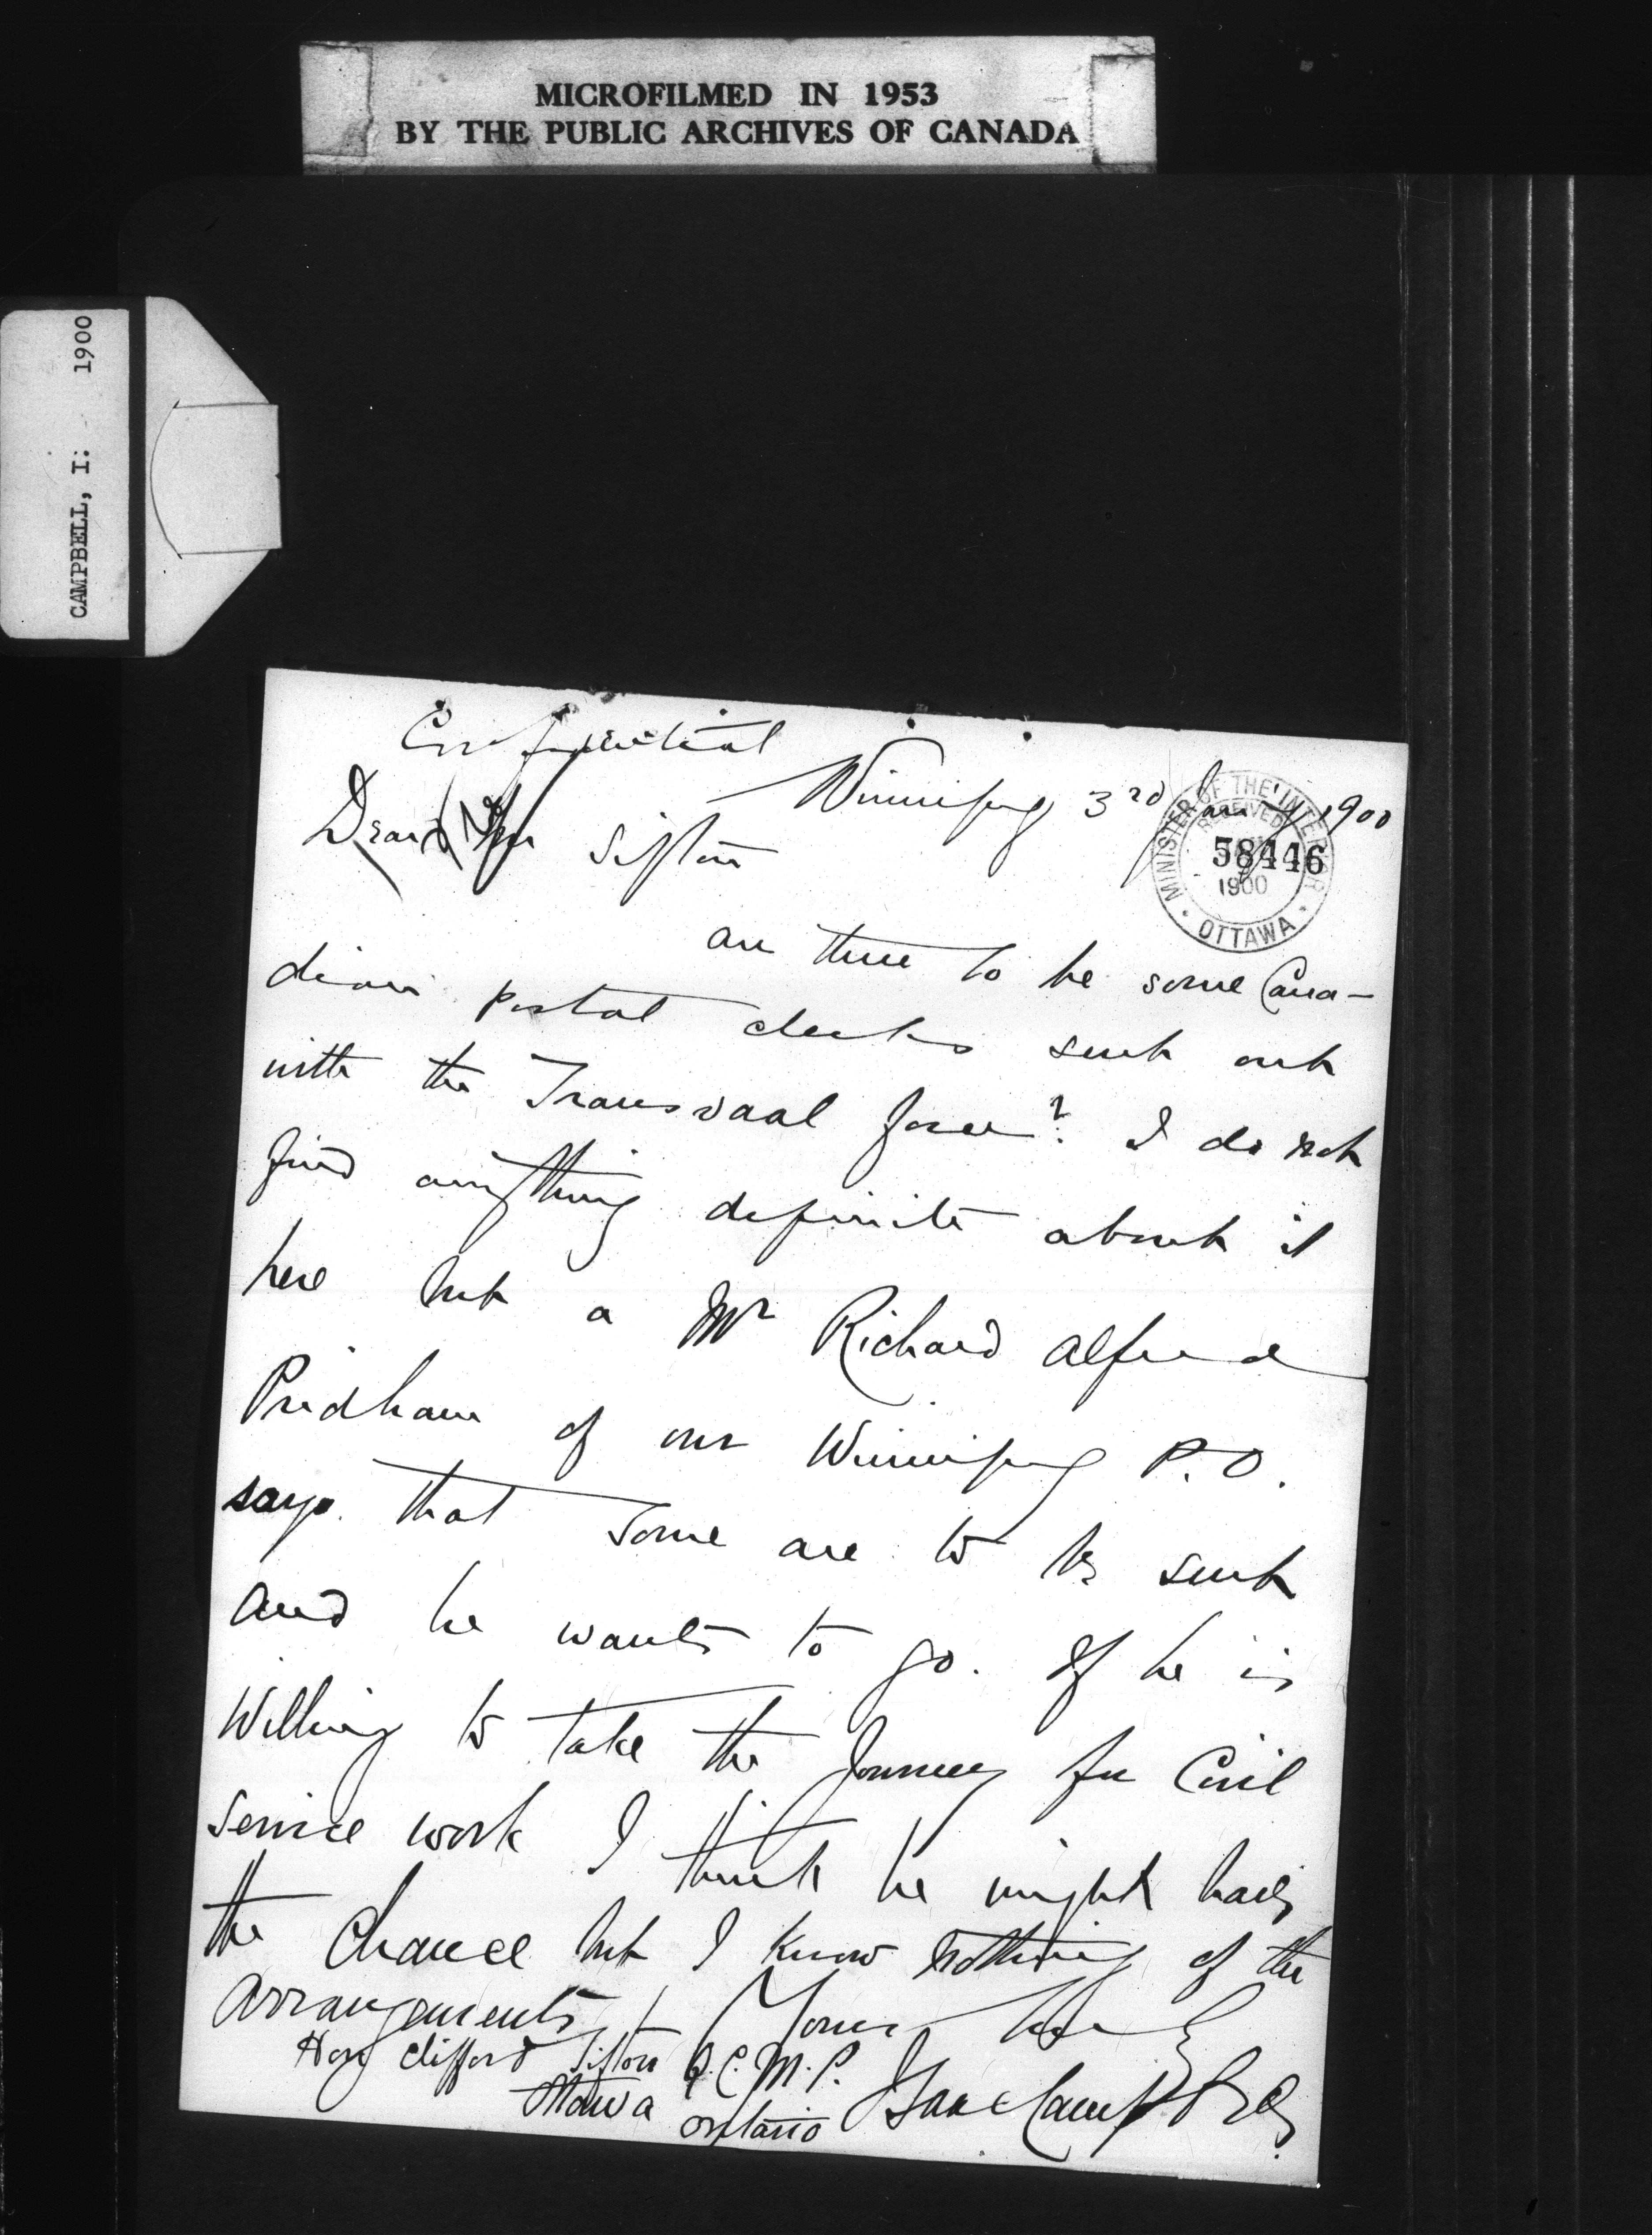 MICROFILMED IN 1953
BY THE PUBLIC ARCHIVES OF CANADA
CAMPBELL, I. 1900
Confidential
Winnipeg 3rd Jany 1900
MINISTER OF THE INTERIOR
RECEIVED
58446
1900
OTTAWA
Dear Mr Sifton
are there to be some Cana-
dian postal clerks sent out
with the Transvaal force? I do not
find anything definite about it
here but a Mr Richard Alfred
Pridham of our Winnipeg P.O.
says that some are to be sent
and he wants to go. If he is
willing to take the journey for Civil
Service work I think he might have
the chance but I know nothing of the
arrangements
Yours
Hon Clifford Sifton Q.C. M.P.
Ottawa
Ontario
Isaac Campbell